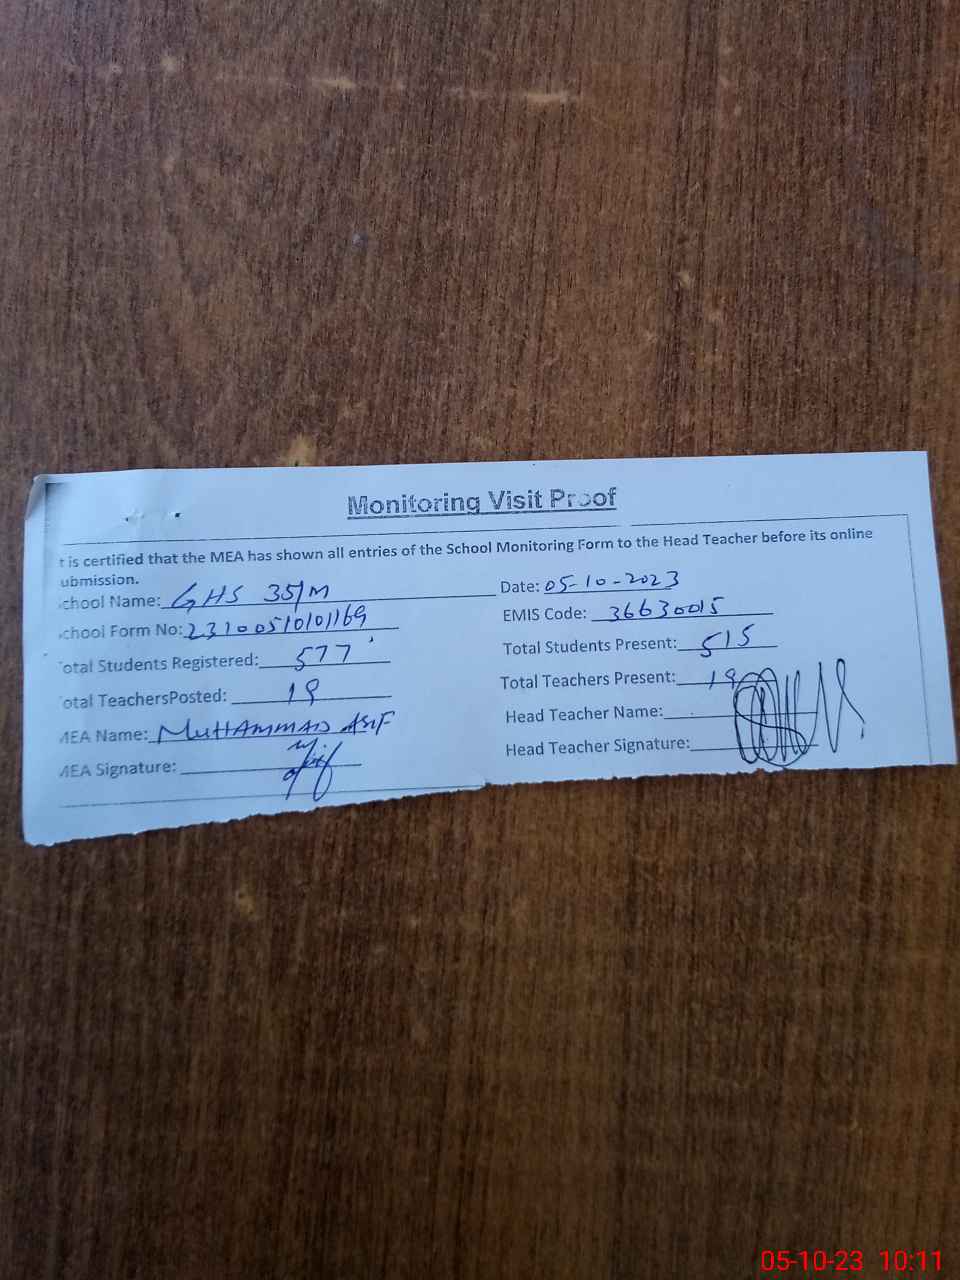 Monitoring Visit Proof
t is certified that the MEA has shown all entries of the School Monitoring Form to the Head Teacher before its online
ubmission.
chool Name: GHS 35/M Date: 05-10-2023
chool Form No: 23100510101169 EMIS Code: 36630015
otal Students Registered: 577 Total Students Present: 515
otal TeachersPosted: 19 Total Teachers Present: 19
MEA Name: MUHAMMAD ASIF Head Teacher Name:
MEA Signature: Head Teacher Signature:
05-10-23 10:11